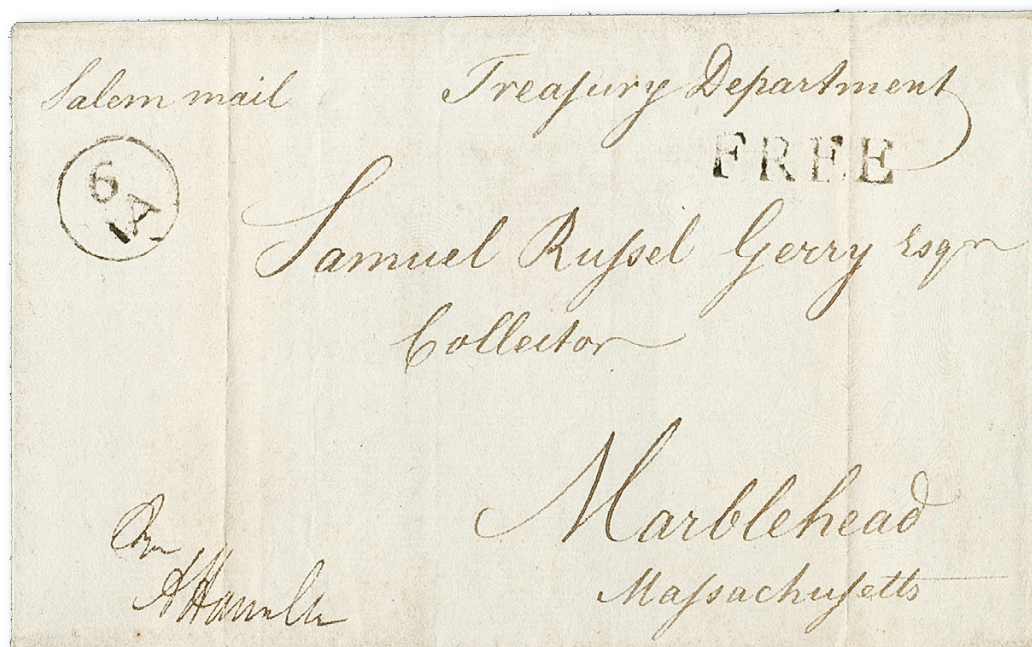 Salem mail
Treaſury Department
FREE
6
IA
Samuel Ruſsel Gerry Esqr
Collector
Marblehead
Maſsachuſetts